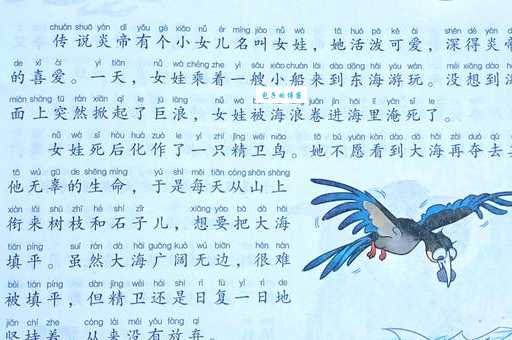 chuán shuō yán dì yǒu gè xiǎo nǚ ér míng jiào nǚ wá
传说炎帝有个小女儿名叫女娃，她活泼可爱，深得炎帝
de xǐ ài yì tiān nǚ wá chéng zhe yì sōu xiǎo chuán lái dào dōng hǎi yóu wán méi xiǎng dào
的喜爱。一天，女娃乘着一艘小船来到东海游玩。没想到
miàn shàng tū rán xiān qǐ le jù làng
面上突然掀起了巨浪，女娃被海浪卷进海里淹死了。
包子的博客
nǚ wá sǐ hòu huà zuò le yì zhī jīng wèi niǎo tā bú yuàn kàn dào dà hǎi zài duó qù
女娃死后化作了一只精卫鸟。她不愿看到大海再夺去
tā wú gū de shēng mìng yú shì měi tiān cóng shān shàng
他无辜的生命，于是每天从山上
xián lái shù zhī hé shí zǐ xiǎng yào bǎ dà hǎi
衔来树枝和石子儿，想要把大海
tián píng suī rán dà hǎi guǎng kuò wú biān hěn nán
填平。虽然大海广阔无边，很难
bèi tián píng dàn jīng wèi hái shì rì fù yí rì de
被填平，但精卫还是日复一日地
jiān chí zhe cóng lái méi yǒu fàng qì
坚持着，从来没有放弃。